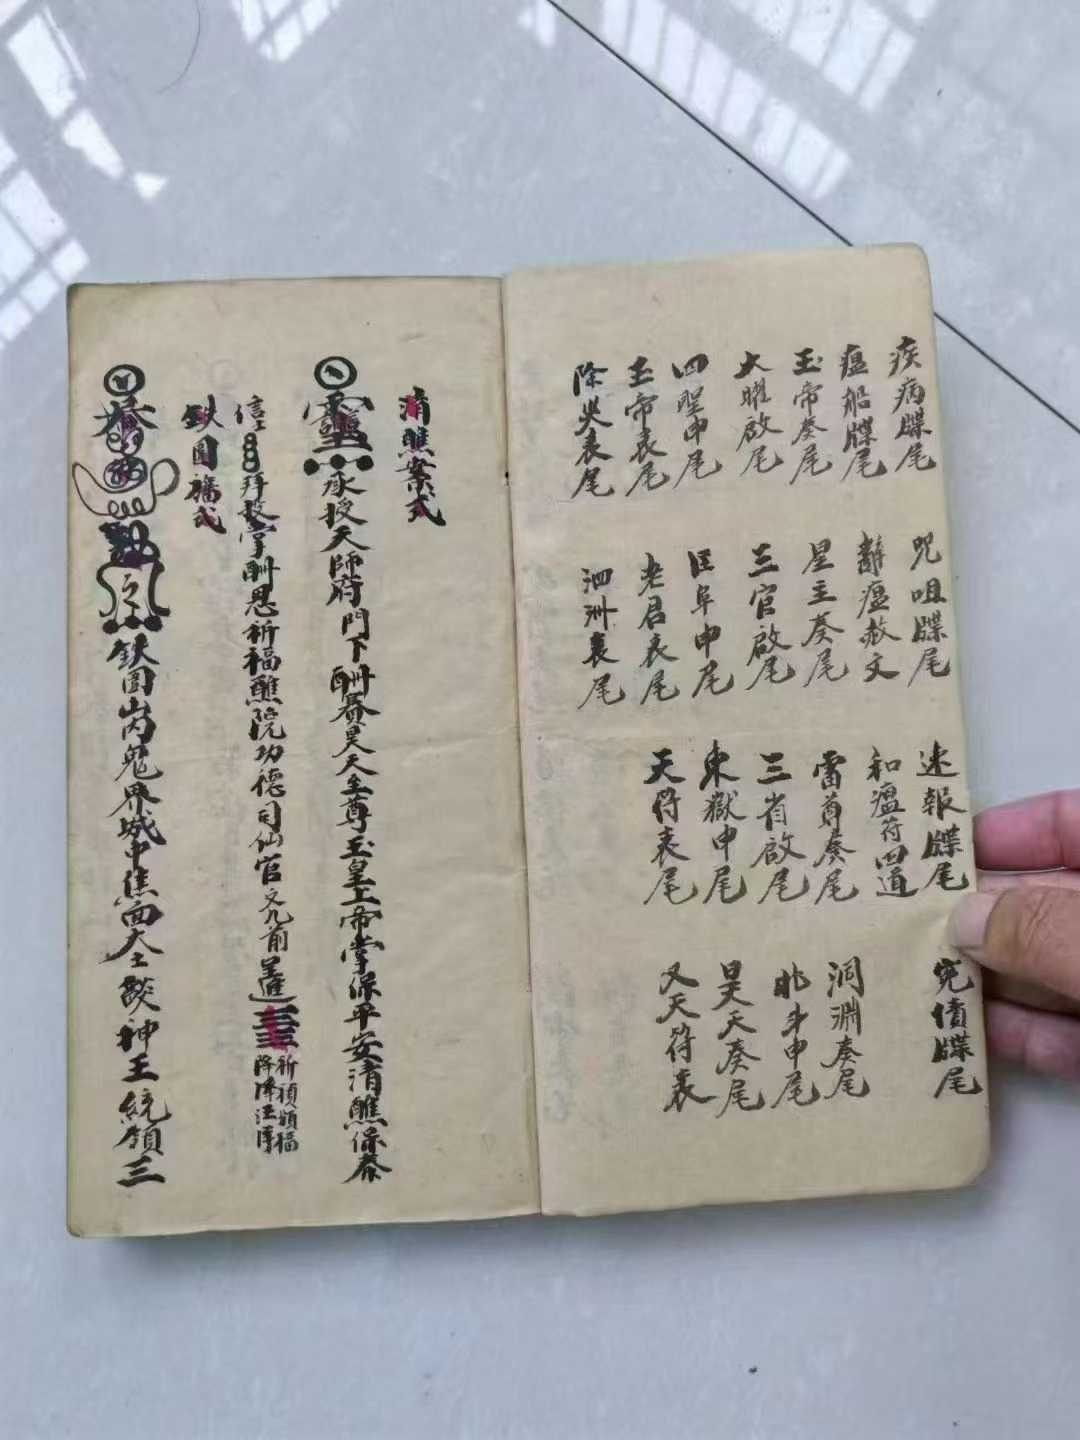 疾病牒尾 咒咀牒尾 速報牒尾 冤債牒尾
瘟船牒尾 辭瘟赦文 和瘟符四道
玉帝奏尾 星主奏尾 雷尊奏尾 洞淵奏尾
大曜啟尾 三官啟尾 三省啟尾 北斗申尾
四聖申尾 匡阜申尾 東獄申尾 昊天奏尾
玉帝表尾 老君表尾 天符表尾 又天符表
除災表尾 泗洲表尾
清醮案式
靈 承授天師府門下酬賽昊天至尊玉皇上帝掌保平安清醮保泰
信士 拜投掌酬恩祈福醮院功德司仙官文九前進 祈禎 福 降
鉄圍旛式
鉄圍山内鬼界城中焦面大士啖神王統領三